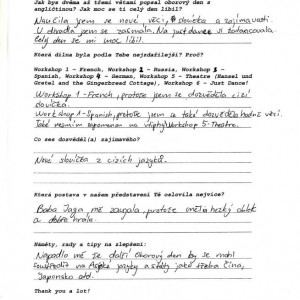 Jak bys dvěma až třemi větami popsal oborový den s
angličtinou? Jak moc se ti celý den líbil?
Naučila jsem se nové věci, slovíčka a zajímavosti.
U divadla jsem se zasmála. Na just dance si zatancovala.
Celý den se mi moc líbil.
Která dílna byla podle Tebe nejzdařilejší? Proč?
Workshop 1 - French, Workshop 2 - Russia, Workshop 3 -
Spanish, Workshop 4 - German, Workshop 5 - Theatre (Hansel und
Gretel and the Gingerbread Cottage), Workshop 6 - Just Dance!
Workshop 1 - French, protože jsem se dozvěděla cizí
slovíčka.
Workshop - Spanish, protože jsem se také dozvěděla hodně věcí.
Také nesmím zapomenout na vtipný Workshop 5 - Theatre.
Co ses dozvěděl(a) zajímavého?
Nová slovíčka z cizích jazyků.
Která postava v našem představení Tě oslovila nejvíce?
Baba Jaga mě zaujala, protože měla hezký oblek
a dobře hrála.
Náměty, rady a tipy na zlepšení:
Napadlo mě že další Oborový den by se mohl
na jazyky a státy jako třeba Čína,
Japonsko atd.
Thank you a lot!